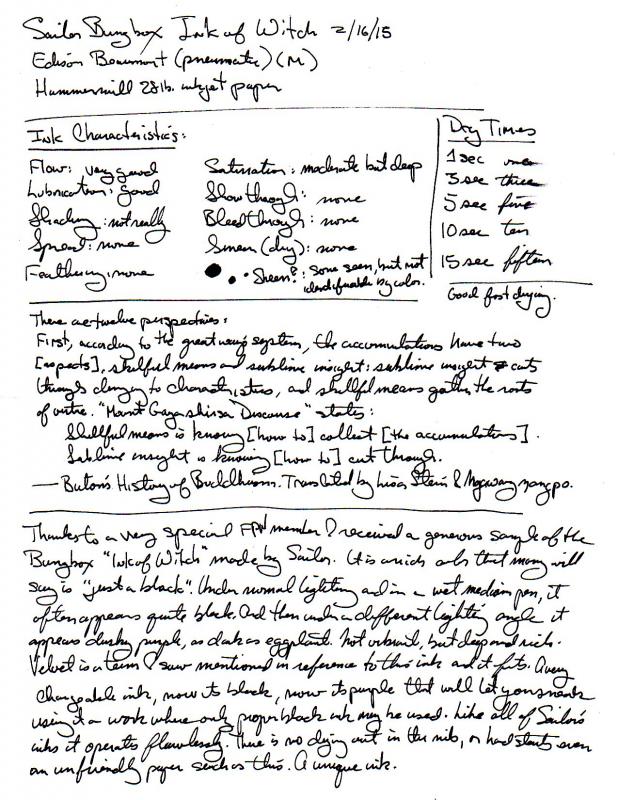 Sailor Bungbox Ink of Witch 2/16/15
Edison Beaumont (pneumatic) (M)
Hammermill 28 lb. inkjet paper
Ink Characteristics:
Flow: very good
Lubrication: good
Shading: not really
Spread: none
Feathering: none
Saturation: moderate but deep
Show through: none
Bleedthrough: none
Smear (dry): none
Sheen?: Some seen, but not
identifiable by color.
Dry Times
1 sec one
3 sec three
5 sec five
10 sec ten
15 sec fifteen
Good fast drying.
There are twelve perspectives:
First, according to the great way system, the accumulations have two
[aspects], skillful means and sublime insight: sublime insight cuts
through clinging to characteristics, and skillful means gather the roots
of virtue. "Mount Gayashirsa Discourse" states:
Skillful means is knowing [how to] collect [the accumulations].
Sublime insight is knowing [how to] cut through.
— Buton's History of Buddhism. Translated by Lisa Stein & Ngawang Zangpo.
Thanks to a very special FPN member I received a generous sample of the
Bungbox "Ink of Witch" made by Sailor. It is a rich color that many will
say is "just a black". Under normal lighting and in a wet medium pen, it
often appears quite black. And then under a different lighting angle it
appears dusky purple, as dark as eggplant. Not vibrant, but deep and rich.
Velvet is a term I saw mentioned in reference to this ink and it fits. A very
changeable ink, now its black, now its purple that will let you sneak
using it a work where only proper black ink may be used. Like all of Sailor's
inks it operates flawlessly. There is no drying out in the nib, or hard starts even
on unfriendly paper such as this. A unique ink.